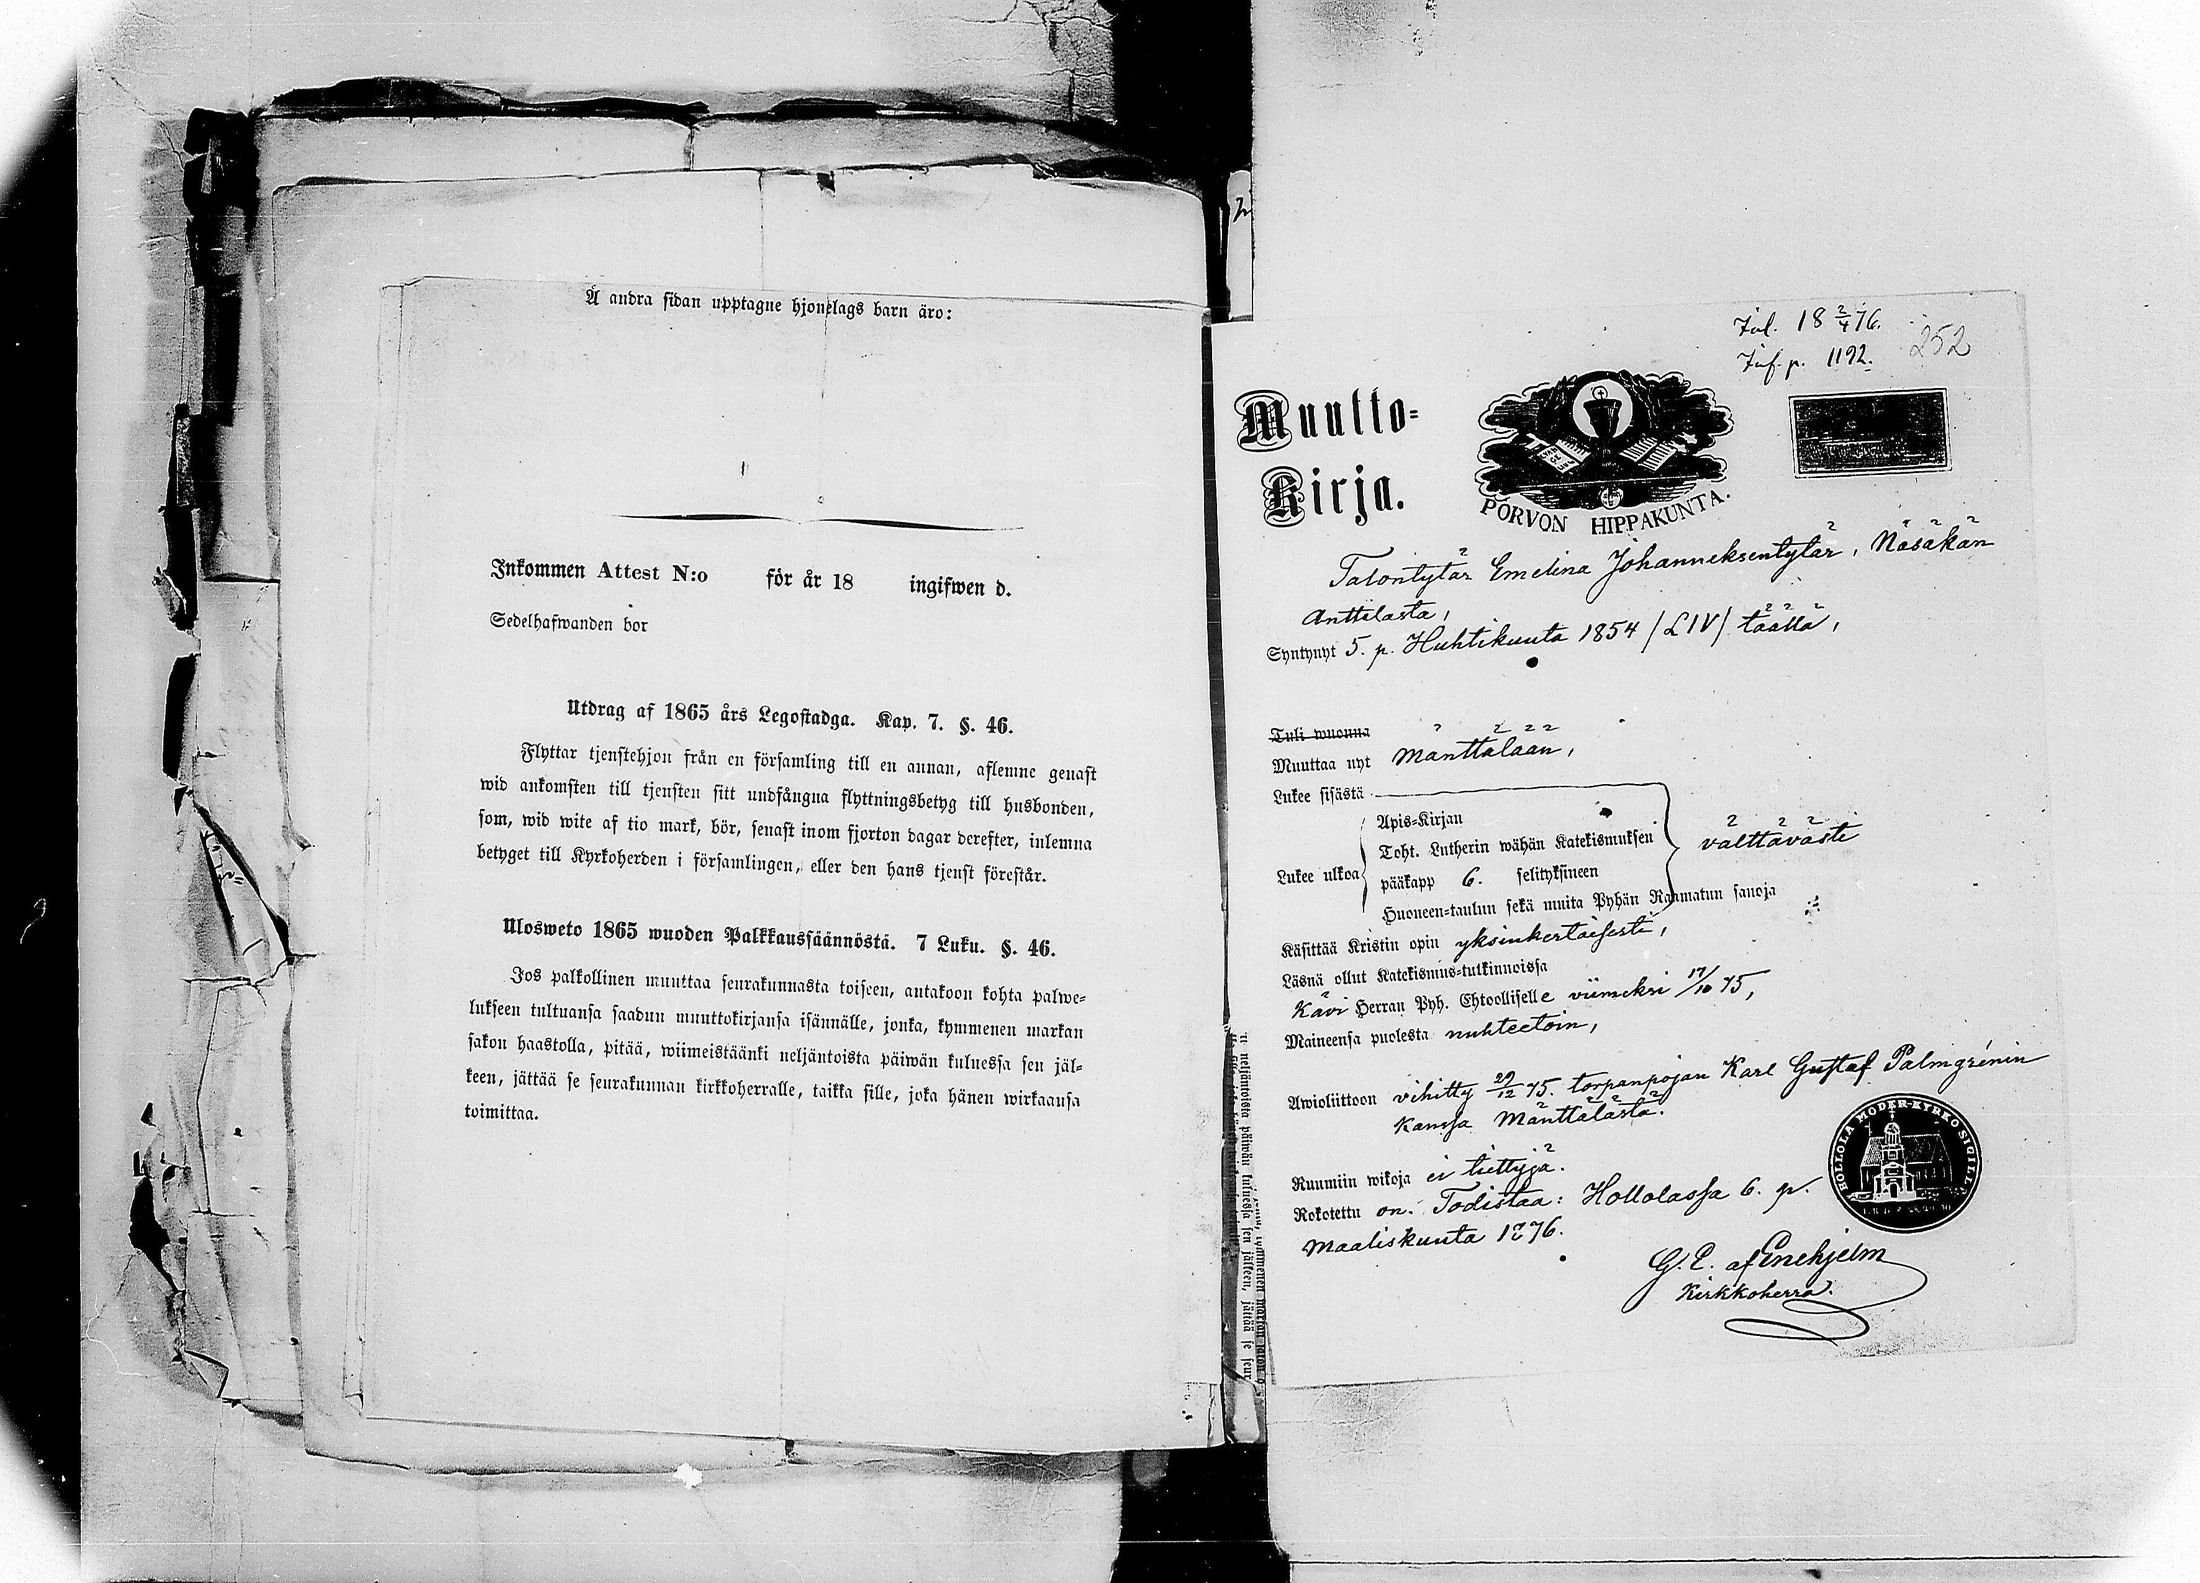 Å andra sidan upptagne hjonelags barn äro:
Inkommen Attest N:o för år 18 ingifwen d.
Sedelhafwanden bor
Utdrag af 1865 års Legostadga. Kap. 7. §. 46.
Flyttar tjenstehjon från en församling till en annan, aflemne genast
wid ankomsten till tjensten sitt undfångna flyttningsbetyg till husbonden,
som, wid wite af tio mark, bör, senast inom fjorton dagar derefter, inlemna
betyget till Kyrkoherden i församlingen, eller den hans tjenst förestår.
Ulosweto 1865 wuoden Palkkaussäännöstä. 7 Luku. §. 46.
Jos palkollinen muuttaa seurakunnasta toiseen, antakoon kohta palwe-
lukseen tultuansa saadun muuttokirjansa isännälle, jonka, kymmenen markan
sakon haastolla, pitää, wiimeistäänki neljäntoista päiwän kuluessa sen jäl-
keen, jättää se seurakunnan kirkkoherralle, taikka sille, joka hänen wirkaansa
toimittaa.
18 2/4 76.
Inf. p. 1192. 252
Muutto-
Kirja.
PORVON HIPPAKUNTA.
Talontytär Emelina Johanneksentytär, Näsäkän
Anttilasta,
Syntynyt 5. p. Huhtikuuta 1854 /LIV/ täällä,
Tuli wuonna
Muuttaa nyt Mänttälään,
Lukee sisästä
Apis-Kirjan
Toht. Lutherin wähän Katekismuksen välttävästi
Lukee ulkoa pääkapp 6. selityksineen
Huoneen-taulun sekä muita Pyhän Raamatun sanoja
Käsittää Kristin opin yksinkertaisesti,
Läsnä ollut Katekismus-tutkinnoissa
Kävi Herran Pyh. Ehtoolliselle viimeksi 17/10 75,
Maineensa puolesta nuhteetoin,
Awioliittoon vihitty 29/12 75. torpanpojan Karl Gustaf Palmgrénin
kanssa Mänttälästä.
Ruumiin wikoja ei tiettyjä.
Rokotettu on. Todistaa: Hollolassa 6. p.
Maaliskuuta 1876.
HOLLOLA MODER-KYRKO SIGILL
G. E. af Enehjelm
Kirkkoherra.